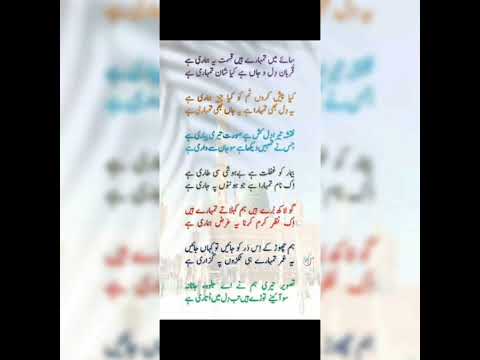 سائے میں تمہارے ہیں قسمت یہ ہماری ہے
قربانِ دل و جاں ہے کیا شان تمہاری ہے
کیا پیش کروں تم کو کیا چیز ہماری ہے
یہ دل بھی تمہارا ہے یہ جاں بھی تمہاری ہے
نقشہ تیرا دلکش ہے صورت تیری پیاری ہے
جس نے تمہیں دیکھا ہے سو جان سے واری ہے
بیمار کو غفلت ہے بے ہوشی سی طاری ہے
اِک نام تمہارا ہے جو ہونٹوں پہ جاری ہے
گو لاکھ بُرے ہیں ہم کہلاتے تمہارے ہیں
اِک نظرِ کرم کرنا یہ عرض ہماری ہے
ہم چھوڑ کے اِس در کو جائیں تو کہاں جائیں
یہ عمر تمہارے ہی ٹکڑوں پہ گزاری ہے
تصویر تیری ہم نے اے جانانہ
سو آئینے توڑے ہیں تب دل میں اُتاری ہے